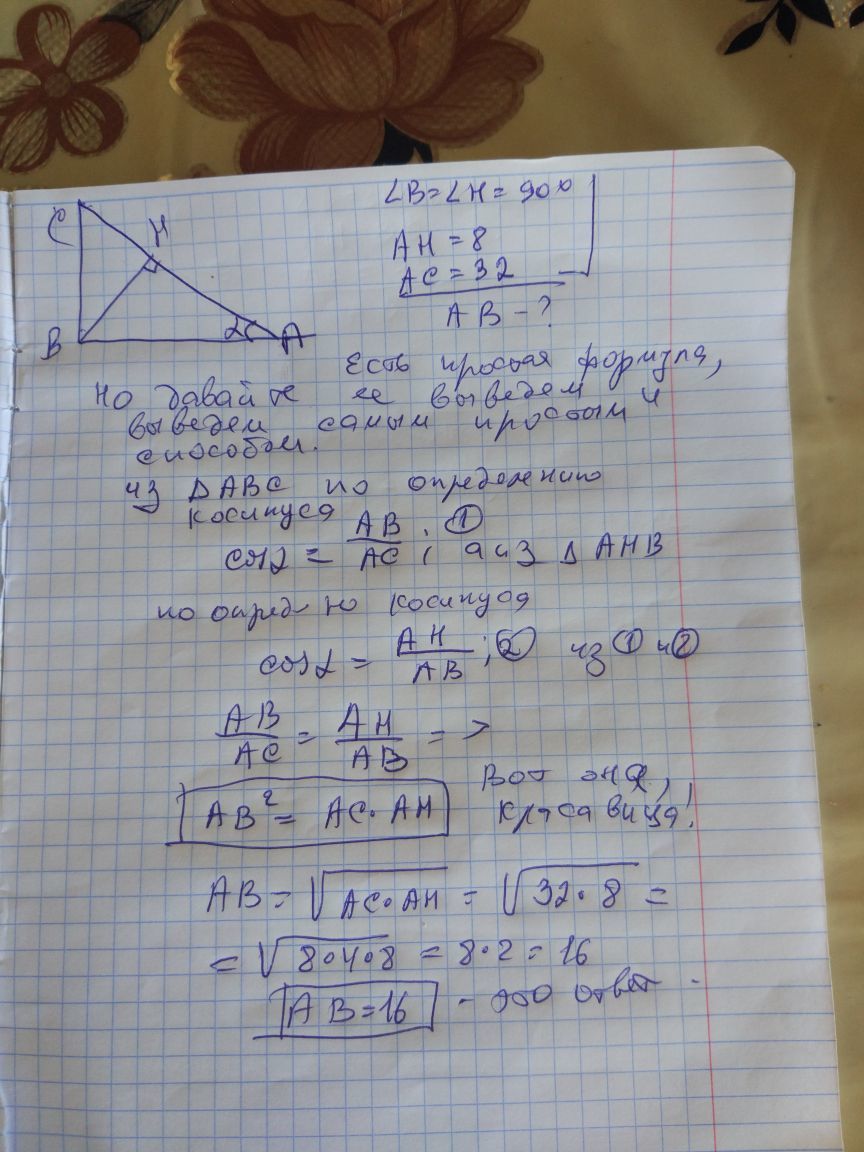 C
H
B
α
A
∠B=∠H=90°
AH=8
AC=32
AB-?
Есть простая формула,
но давайте ее выведем и
выведем самым простым
способом.
из ΔABC по определению
косинуса
cosα = AB/AC; ① а из Δ AHB
по опред-ю косинуса
cosα = AH/AB; ② из ① и ②
AB/AC = AH/AB =>
AB² = AC·AH
Вот она,
красавица!
AB = √AC·AH = √32·8 =
= √8·4·8 = 8·2 = 16
AB=16 - это ответ.